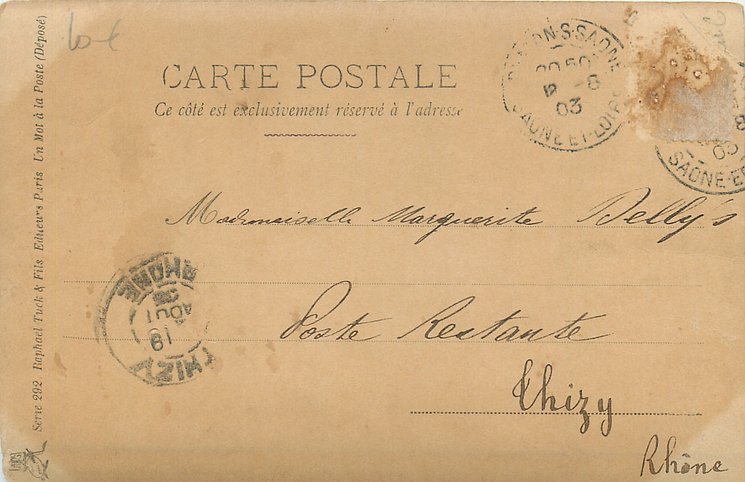 10 €
CARTE POSTALE
Ce côté est exclusivement réservé à l'adresse
S-SAONE
5 -8
03
SAONE-ET-LOIRE
03
SAONE-E
Mademoiselle Marguerite Delly's
Poste Restante
Thizy
Rhône
THIZY
RHONE
AOUT
03
Serie 292 Raphael Tuck & Fils Editeurs Paris Un Mot à la Poste (Déposé)